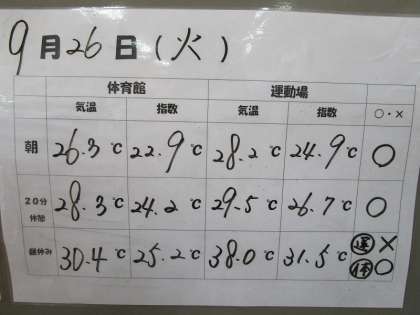 9月26日(火)
体育館 運動場
気温 指数 気温 指数 ○・×
朝 26.3℃ 22.9℃ 28.2℃ 24.9℃ ○
20分休憩 28.3℃ 24.2℃ 29.5℃ 26.7℃ ○
昼休み 30.4℃ 25.2℃ 38.0℃ 31.5℃ 運× 体○